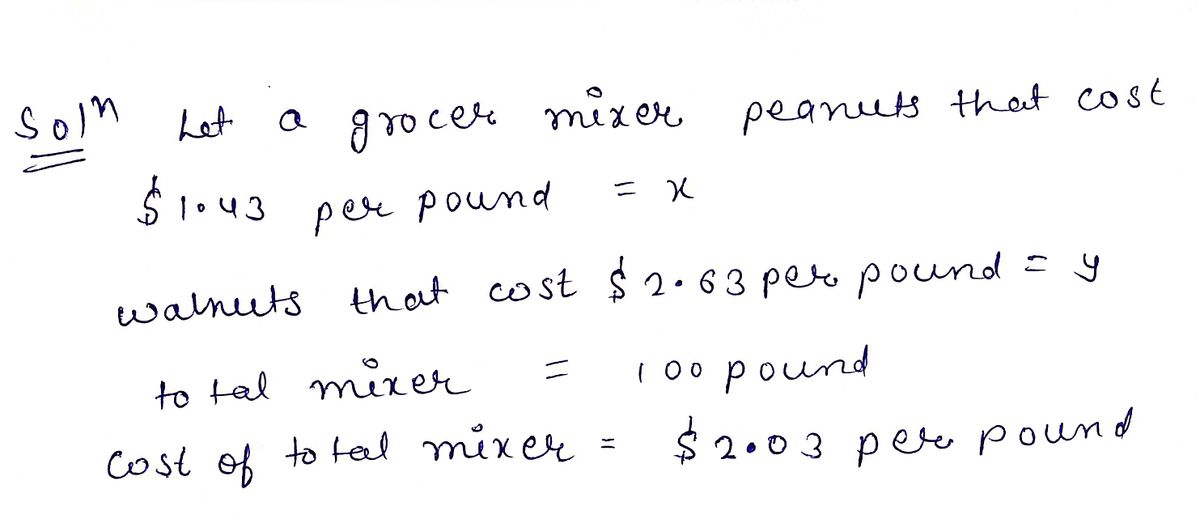 Solⁿ Let a grocer mixer peanuts that cost
$1.43 per pound = x
walnuts that cost $2.63 per pound = y
total mixer = 100 pound
Cost of total mixer = $2.03 per pound